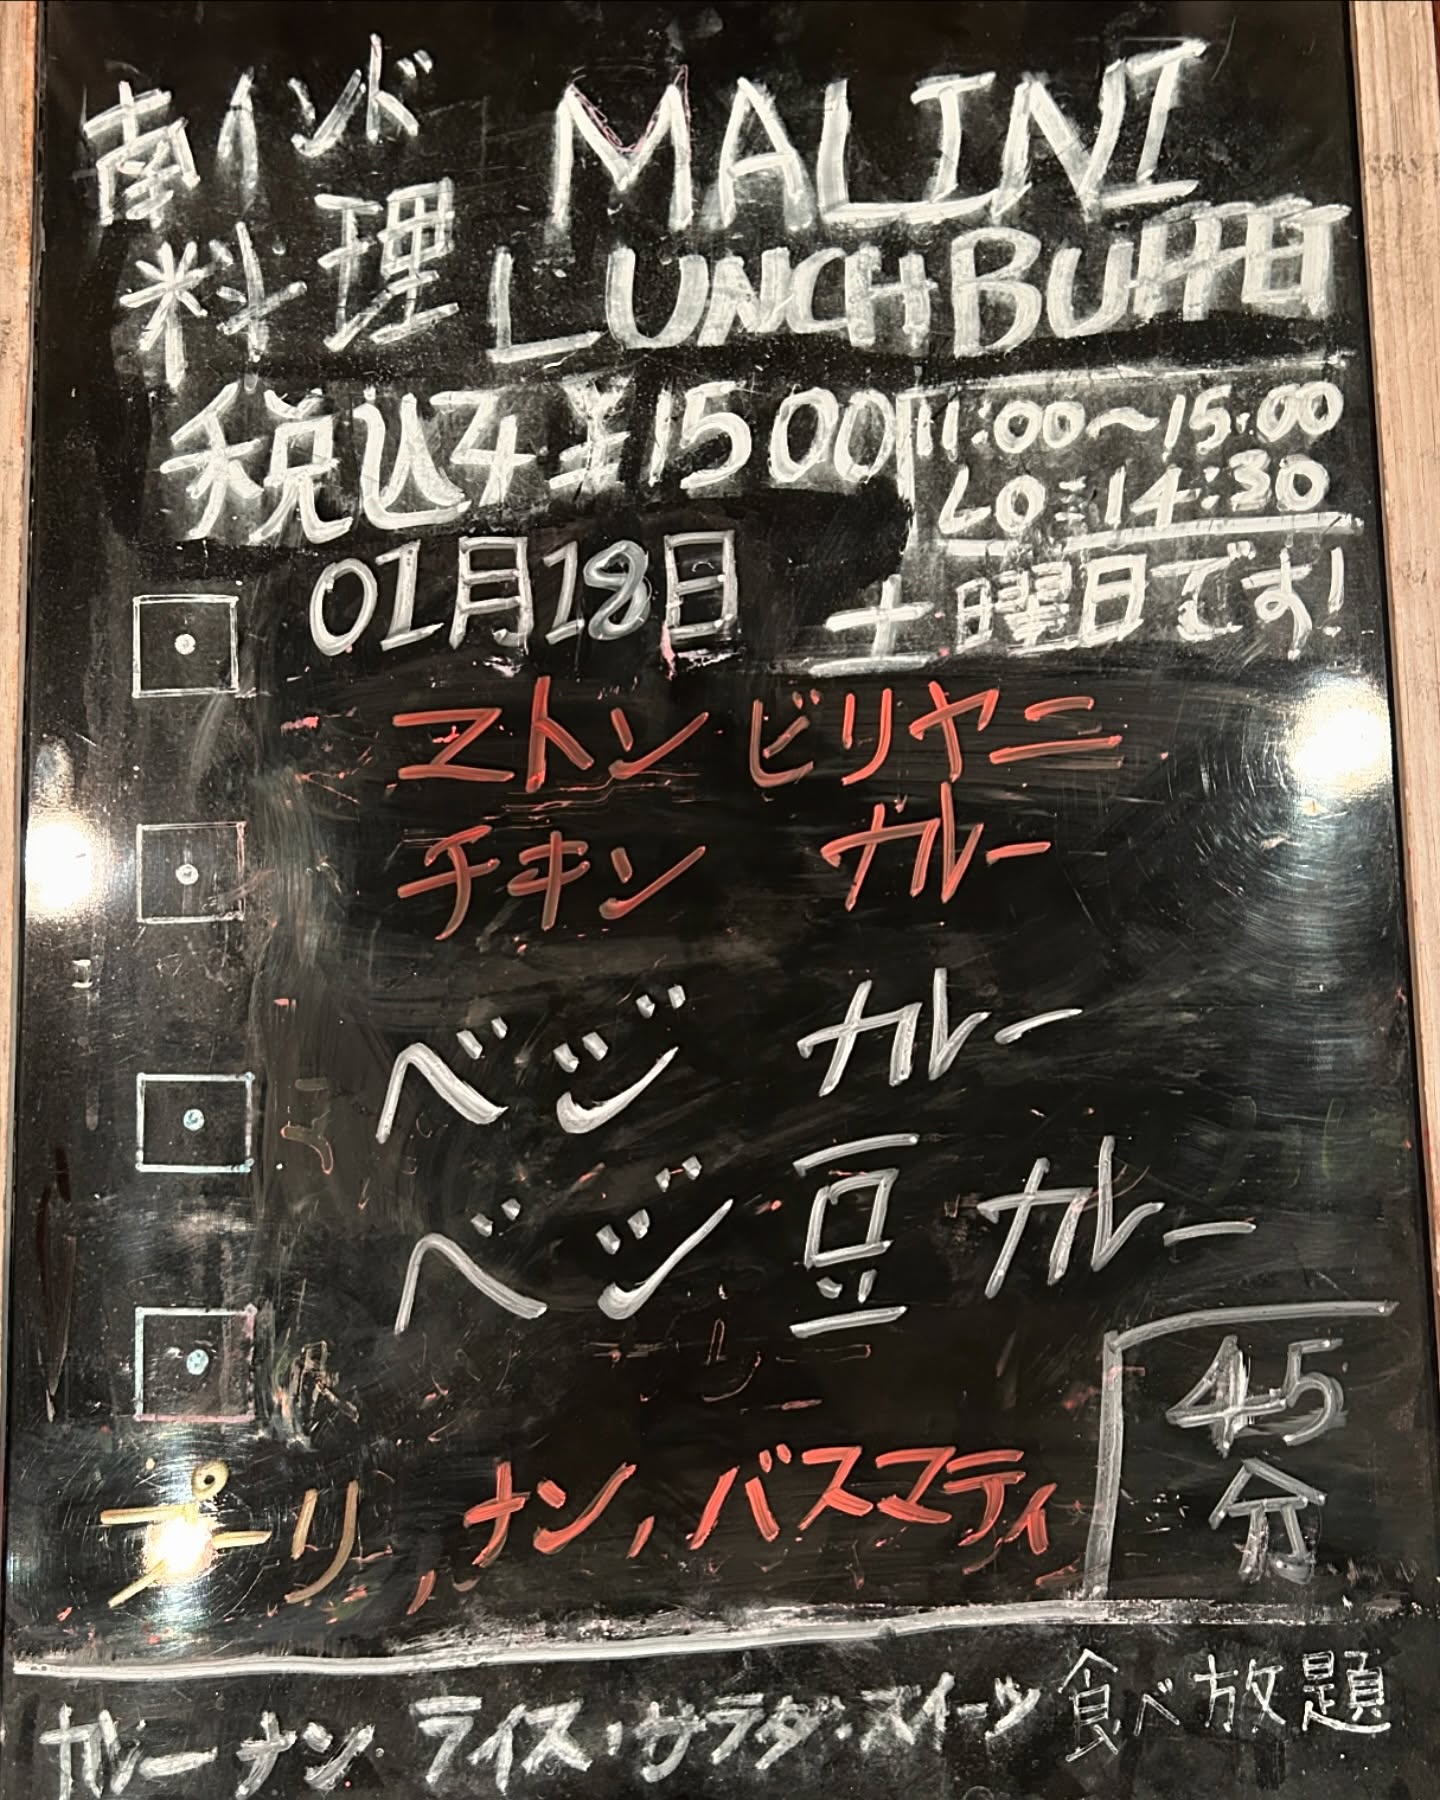 南インド
料理
MALINI
LUNCH BUFFET
税込み¥1500
11:00〜15:00
LO:14:30
01月18日 土曜日です!
マトン ビリヤニ
チキン カレー
ベジ カレー
ベジ 豆 カレー
プーリ,ナン,バスマティ
45
分
カレー ナン ライス・サラダ・スイーツ 食べ放題